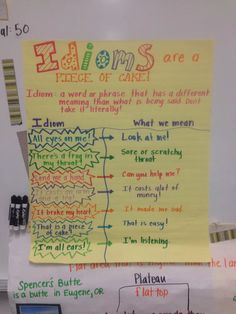 al: 50
Idioms are a
PIECE OF CAKE!
Idiom: a word or phrase that has a different
meaning than what is being said. Don't
take it literally!
Idiom What we mean
All eyes on me! Look at me!
There's a frog in
my throat! Sore or scratchy
throat
Lend me a hand. Can you help me?
It costs an arm
and a leg! It costs alot of
money!
It broke my heart! It made me sad.
That is a piece
of cake! That is easy!
I'm all ears! I'm listening.
Flat area that is high the land
Spencer's Butte
is a butte in Eugene, OR
Plateau
flat top